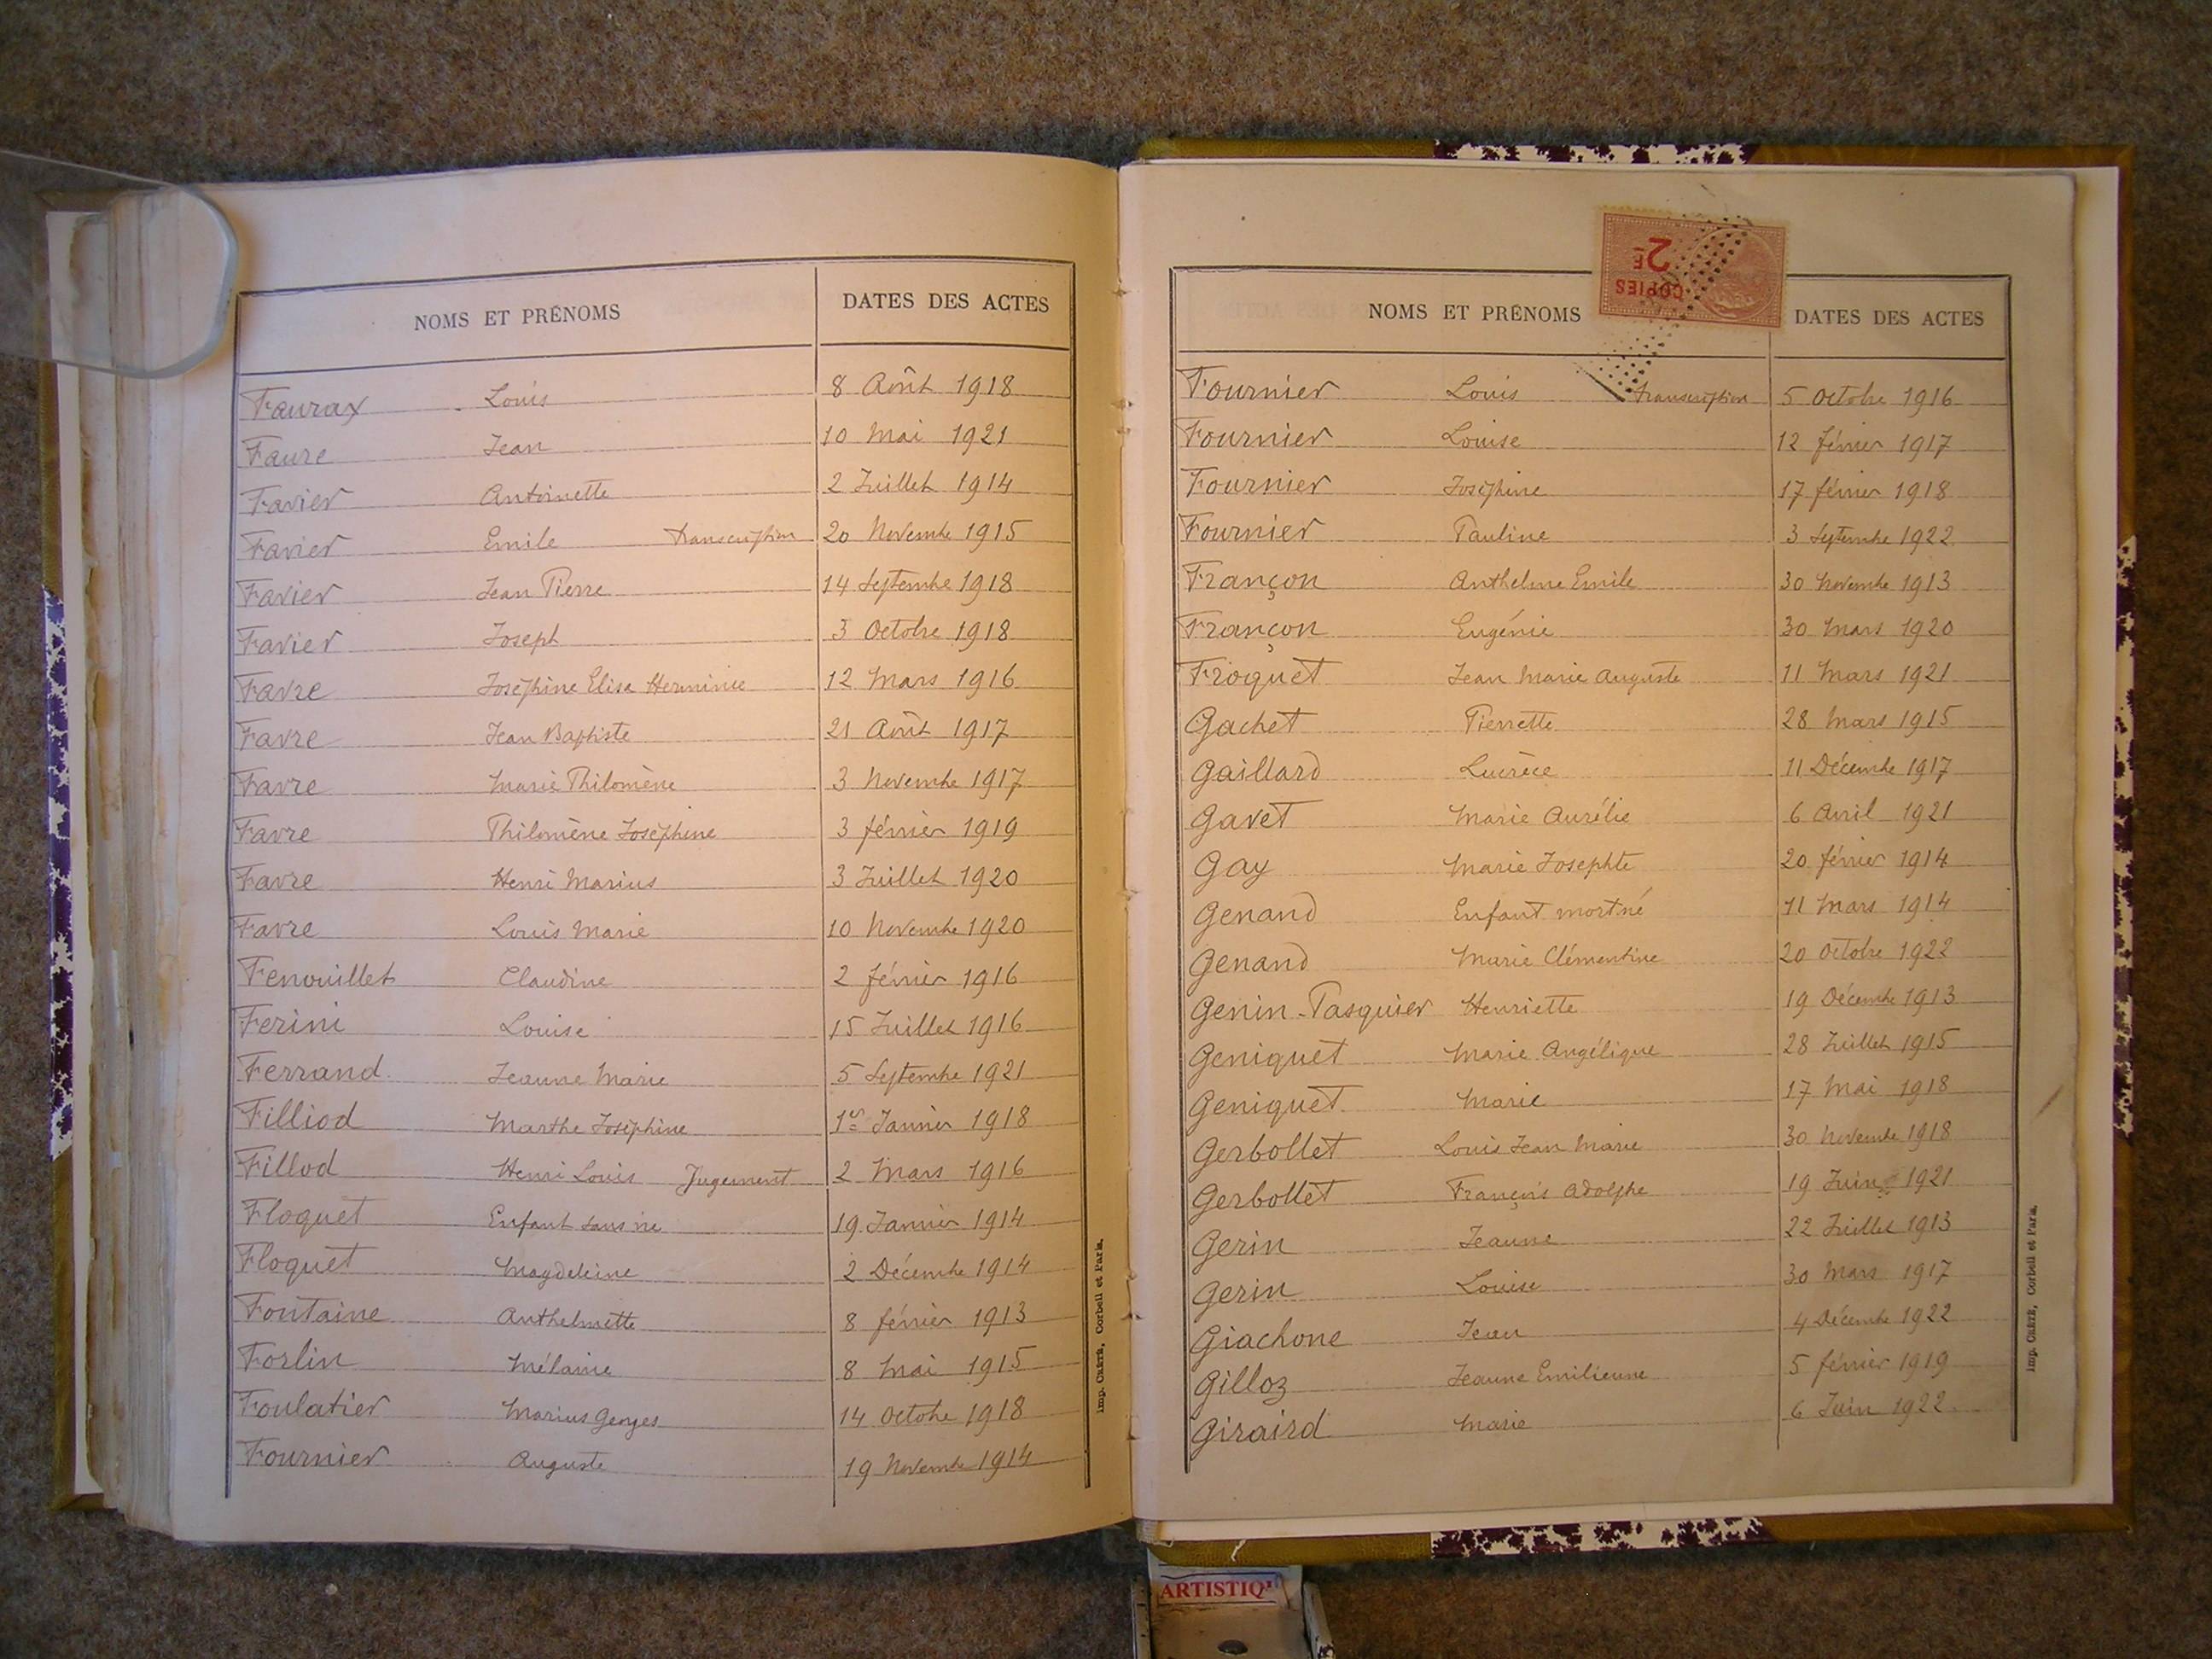 NOMS ET PRÉNOMS DATES DES ACTES
Faurax Louis 8 Août 1918
Faure Jean 10 Mai 1921
Favier Antoinette 2 Juillet 1914
Favier Emile transcription 20 Novembre 1915
Favier Jean Pierre 14 Septembre 1918
Favier Joseph 3 Octobre 1918
Favre Joséphine Elisa Herminie 12 Mars 1916
Favre Jean Baptiste 21 Août 1917
Favre Marie Philomène 3 Novembre 1917
Favre Philomène Joséphine 3 février 1919
Favre Henri Marius 3 Juillet 1920
Favre Louis Marie 10 Novembre 1920
Fenouillet Claudine 2 février 1916
Ferini Louise 15 Juillet 1916
Ferrand Jeanne Marie 5 Septembre 1921
Filliod Marthe Joséphine 1er Janvier 1918
Fillod Henri Louis Jugement 2 Mars 1916
Floquet Enfant sans vie 19 Janvier 1914
Floquet Magdeleine 2 Décembre 1914
Fontaine Anthelmette 8 février 1913
Forlin Mélanie 8 Mai 1915
Foulatier Marius Georges 14 Octobre 1918
Fournier Auguste 19 Novembre 1914
Imp. CRÉTÉ, Corbeil et Paris.
COPIES
2F
NOMS ET PRÉNOMS DATES DES ACTES
Fournier Louis transcription 5 Octobre 1916
Fournier Louise 12 février 1917
Fournier Joséphine 17 février 1918
Fournier Pauline 3 Septembre 1922
Françon Anthelme Emile 30 Novembre 1913
Françon Eugénie 30 Mars 1920
Froquet Jean Marie Auguste 11 Mars 1921
Gachet Pierrette 28 Mars 1915
Gaillard Lucrèce 11 Décembre 1917
Gavet Marie Aurélie 6 Avril 1921
Gay Marie Josephte 20 février 1914
Genand Enfant mort né 11 Mars 1914
Genand Marie Clémentine 20 Octobre 1922
Genin-Pasquier Henriette 19 Décembre 1913
Geniquet Marie Angélique 28 Juillet 1915
Geniquet Marie 17 Mai 1918
Gerbollet Louis Jean Marie 30 Novembre 1918
Gerbollet François Adolphe 19 Juin 1921
Gerin Jeanne 22 Juillet 1913
Gerin Louise 30 Mars 1917
Giachone Jean 4 Décembre 1922
Gilloz Jeanne Emilienne 5 février 1919
Giraird Marie 6 Juin 1922
Imp. CRÉTÉ, Corbeil et Paris.